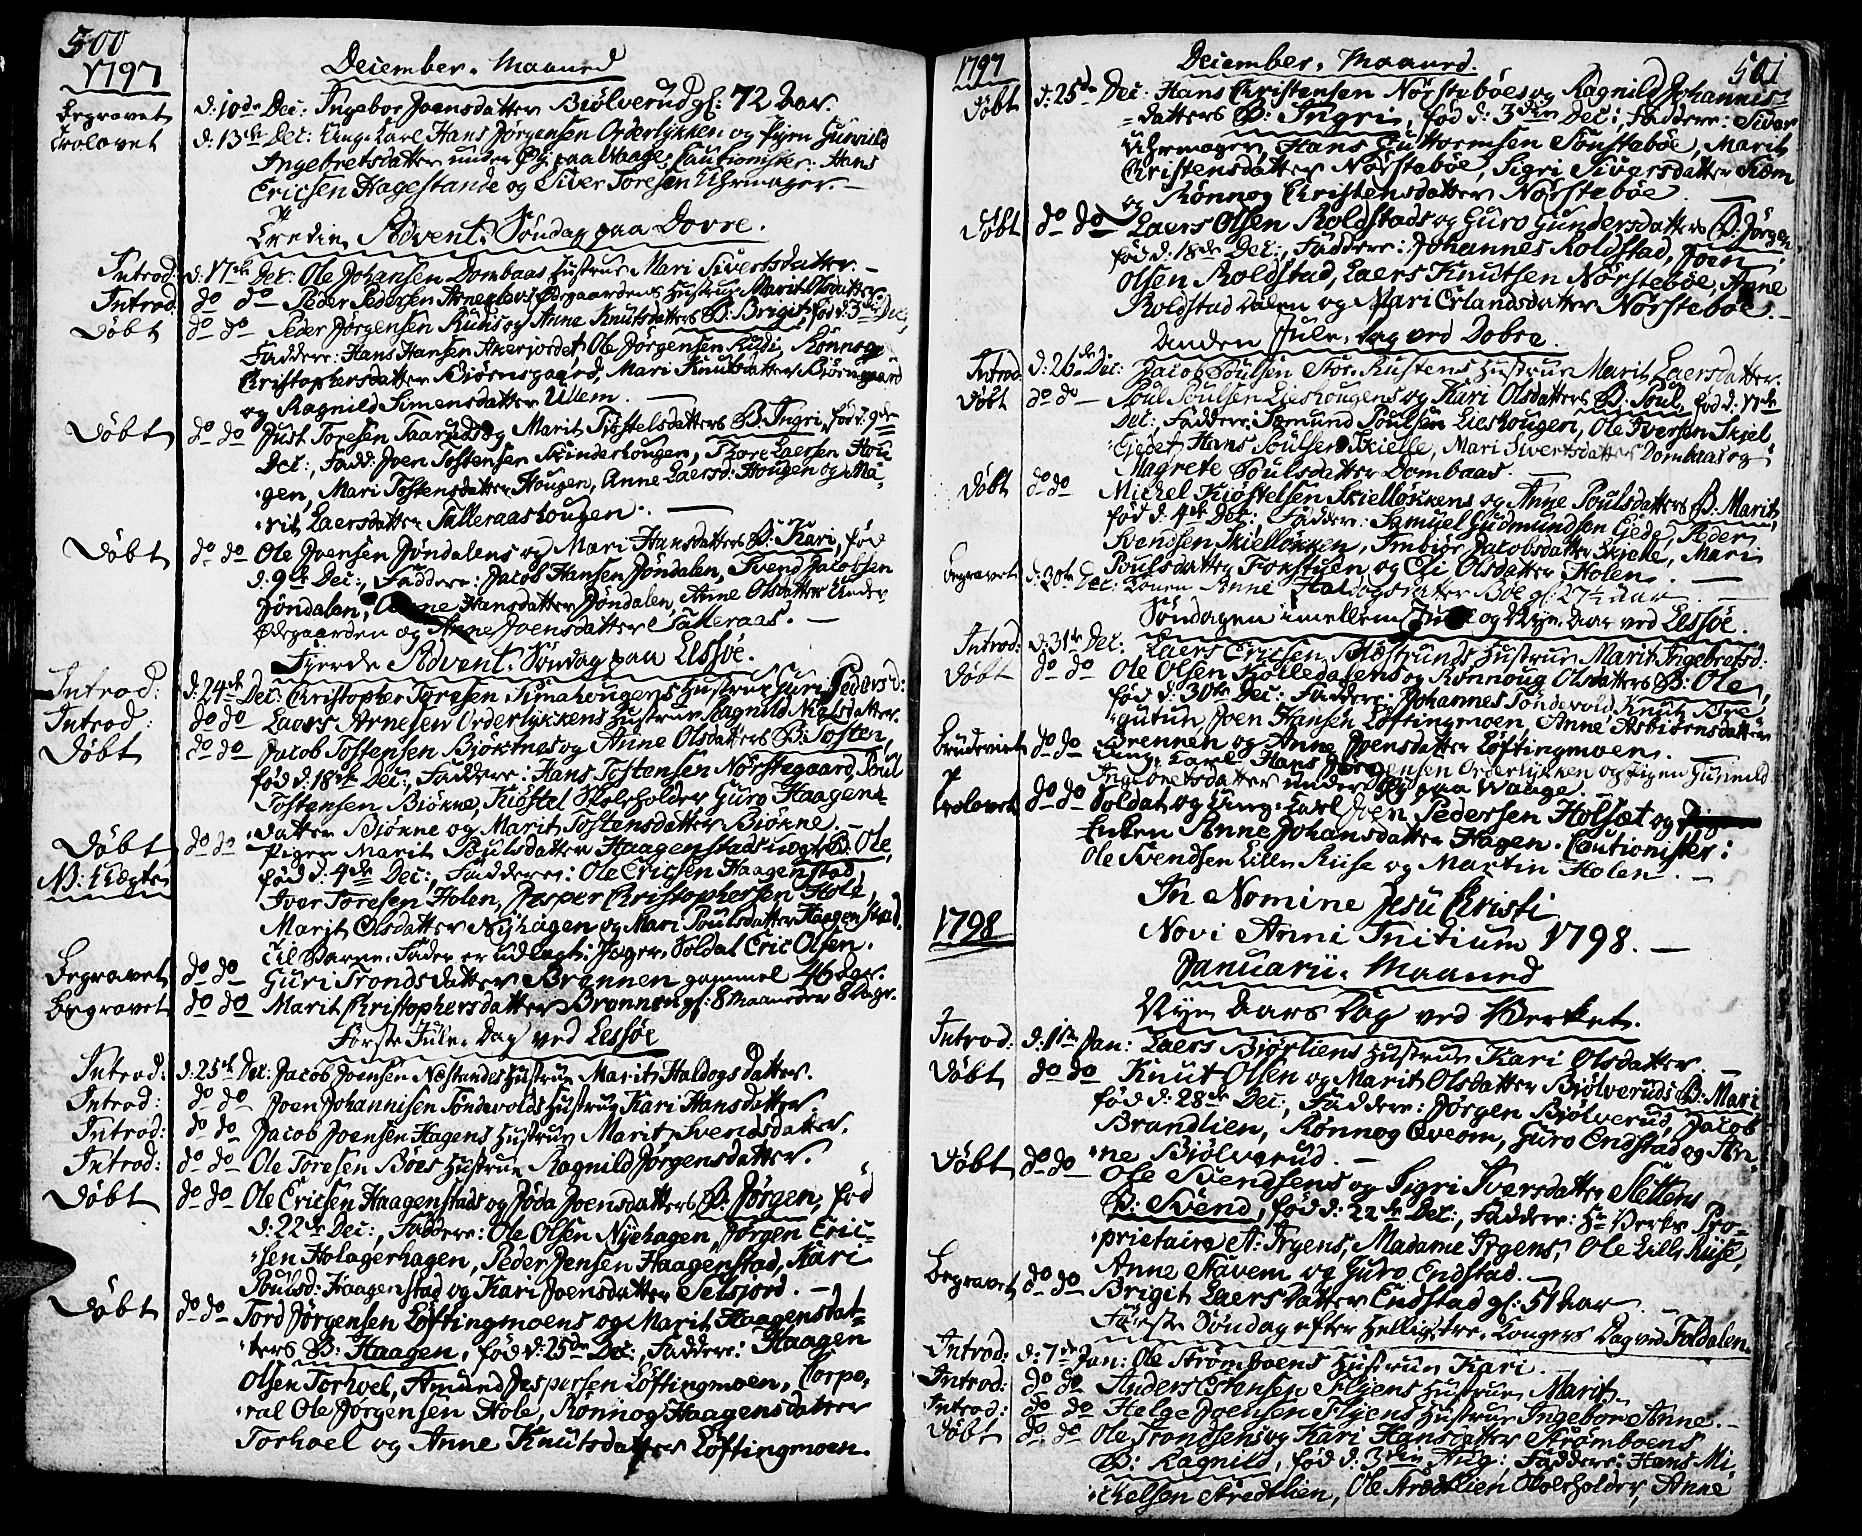 500
1797
December-Maaned
Begravet d: 10de Dec: Ingebor Joensdatter Biølverud gl: 72 Aar.
Trolovet d: 13de Dec: Ung-Karl Hans Jørgensen Orderlykken og Pigen Gunnild
Ingebretsdatter under Øy paa Waage; Cautionister: Hans
Ericsen Hagestande og Siver Toresen Uhrmager. —
Tredie Advent-Søndag paa Dovre.
Introd: d: 17de Dec: Ole Johansen Dombaas Hustrue Mari Sivertsdatter. —
Introd: do do Peder Pedersen Hustrue Marit Olsdatter.
Døbt do do Peder Jørgensen Ruds og Anne Knutsdatters B: Brigit, fød d: 3de Dec:
Faddere: Hans Hansen Akerjordet, Ole Jørgensen Rudi, Rønnog
Christophersdatter Biørnsgaard, Mari Knutsdatter Biørnsgaard
og Ragnild Simensdatter Ullem. —
Døbt do do Just Toresen Taaruds og Marit Kiøstelsdatters B: Ingri, fød d: 9de
Dec:, Fadd: Joen Tostensen Kinderhougen, Thore Laersen Hou-
gen, Mari Tostensdatter Hougen, Anne Laersd: Hougen og Ma-
rit Laersdatter Talleraashougen. —
Døbt do do Ole Joensen Jøndalens og Mari Hansdatters B: Kari, fød
d: 9de Dec:, Faddere: Jacob Hansen Jøndalen, Svend Jacobsen
Jøndalen, Hansdatter Jøndalen, Anne Olsdatter Under
Ødegaarden og Anne Joensdatter Talleraas. —
Fjerde Advent-Søndag paa Lessøe.
Introd: d: 24de Dec: Christopher Toresen Simahougens Hustrue Guri Pedersd:
Introd: do do Laers Arnesen Orderlykkens Hustrue Ragnild Nielsdatter.
Døbt do do Jacob Tostensen Biøknes og Anne Olsdatters B: Tosten,
fød d: 18de Dec:, Faddere: Hans Tostensen Nørstegaard, Poul
Tostensen Biøkne, Kiøstel Skoleholder, Guro Haagens-
datter Biøkne og Marit Tostensdatter Biøkne. —
Døbt do do Pigen Marit Poulsdatter Haagenstads uægte B: Ole,
N: Uægte fød d: 4de Dec:, Faddere: Ole Ericsen Haagenstad,
Iver Toresen Holen, Jesper Christophersen Hole,
Marit Olsdatter Nyhagen og Mari Poulsdatter Haagenstad.
Til Barne-Fader er udlagt: Jæger-Soldat Eric Olsen.
Begravet do do Guri Trondsdatter Brennen gammel 46 Dgr.
Begravet do do Marit Christophersdatter Brennen gl: 8 Maaneder 8 Dage.
Første Jule-Dag ved Lessøe
Introd: d: 25de Dec: Jacob Joensen Nestandes Hustrue Marit Haldogsdatter.
Introd: do do Joen Johannisen Tøndevolds Hustrue Kari Hansdatter.
Introd: do do Jacob Joensen Hagens Hustrue Marit Svensdatter.
Introd: do do Ole Toresen Bøes Hustrue Ragnild Jørgensdatter.
Døbt do do Ole Ericsen Haagenstads og Jøda Joensdatters B: Jørgen, fød
d: 22de Dec:, Faddere: Ole Olsen Nyehagen, Jørgen Eric-
sen Holagerhagen, Peder Jensen Haagenstad, Kari
Poulsd: Haagenstad og Kari Joensdatter Selsjord. —
Døbt do do Tord Jørgensen Løftingmoens og Marit Haagensdat-
ters B: Haagen, fød d: 25de Dec:, Faddere: Haagen
Olsen Torhoel, Amund Jespersen Løftingmoen, Corpo-
ral Ole Jørgensen Hole, Rønnog Haagensdatter
Torhoel og Anne Knutsdatter Løftingmoen.
1797
December-Maaned.
501
Døbt d: 25de Dec: Hans Christensen Nørstebøes og Ragnild Johannis-
datters B: Ingri, fød d: 3die Dec:, Faddere: Siver
Uhrmager, Hans Guttormsen Sønstebøe, Marit
Christensdatter Nørstebøe, Sigri Siversdatter
og Rønnog Christensdatter Nørstebøe. —
Døbt do do Laers Olsen Roldstads og Guro Gundersdatters B: Jørgen,
fød d: 18de Dec:, Faddere: Johannes Roldstad, Joen
Olsen Roldstad, Laers Knutsen Nørstebøe, Anne
Roldstaddalen og Mari Erlandsdatter Nørstebøe. —
Anden Jule-Dag ved Dovre.
Introd: d: 26de Dec: Jacob Poulsen Stor-Rustens Hustrue Marit Laersdatter.
Døbt do do Poul Poulsen Lieshougens og Kari Olsdatters B: Poul, fød d: 17de
Dec:, Faddere: Samund Poulsen Lieshougen, Ole Iversen Skjel-
Hans Poulsen Skielle, Mari Sivertsdatter Dombaas og
Magrete Poulsdatter Dombaas.
Døbt do do Michel Kiøstelsen Skielløkkens og Anne Poulsdatters B: Marit,
fød d: 4de Dec:, Faddere: Samuel Gudmundsen Gjede, Peder
Svendsen Skielløkken, Imbiør Jacobsdatter Skielle, Mari
Poulsdatter Fokstuen og Eli Olsdatter Holen. —
Begravet d: 30te Dec: Konen Anne Haldogsdatter Bøe gl: 27½ Aar. —
Søndagen imellem Jule og Nye-Aar ved Lessøe.
Introd: d: 31te Dec: Laers Ericsen Hustrue Marit Ingebretsd:
Døbt do do Ole Olsen Kolledalens og Rønnoug Olsdatters B: Ole,
fød d: 30te Dec:, Faddere: Johannes Tøndevold, Knut
Joen Hansen Løftingmoen, Anne Asbiørnsdatter
Brennen og Anne Joensdatter Løftingmoen.
Brudeviet do do Ung-Karl Hans Jørgensen Orderlykken og Pigen Gunnild
Ingebretsdatter under Øy paa Waage.
Trolovet do do Soldat og Ung-Karl Joen Pedersen Holsæt og
Enken Anne Johansdatter Hagen. Cautionister:
Ole Svendsen Lille-Ruse og Martin Holen. —
In Nomine Jesu Christi
1798
Novi Anni Initium 1798. —
Januarii-Maaned
Nye Aars Dag ved Verket.
Introd: d: 1te Jan: Laers Biørliens Hustrue Kari Olsdatter. —
Døbt do do Knut Olsen og Marit Olsdatter Biølveruds B: Mari
fød d: 28de Dec:, Faddere: Jørgen Biølverud, Jacob
Brandlien, Rønnog Qveom, Guro Endstad og An-
ne Biølverud. —
Døbt do do Ole Svendsens og Sigri Iversdatter Slettens
B: Svend, fød d: 22de Dec:, Faddere: Hr Verks Pro-
prietaire A: Irgens, Madame Irgens, Ole Lille Ruse,
Anne Stavem og Guro Endstad. —
Begravet do do Brigit Laersdatter Endstad gl: 51 Aar.
Første Søndag efter Hellig-tre-Kongers Dag ved Foldalen.
Introd: d: 7de Jan: Ole Strømboens Hustrue Kari.
Introd: do do Anders Estensen Hustrue Marit.
Introd: do do Helge Joensen Hustrue Ingebor Anne. —
Døbt do do Ole Trondsens og Kari Hansdatter Strømboens
B: Ragnild, fød d: 3die Aug:, Faddere: Hans Mi-
chelsen Strædtlien, Ole Strædtlien, Skoleholder, Anne